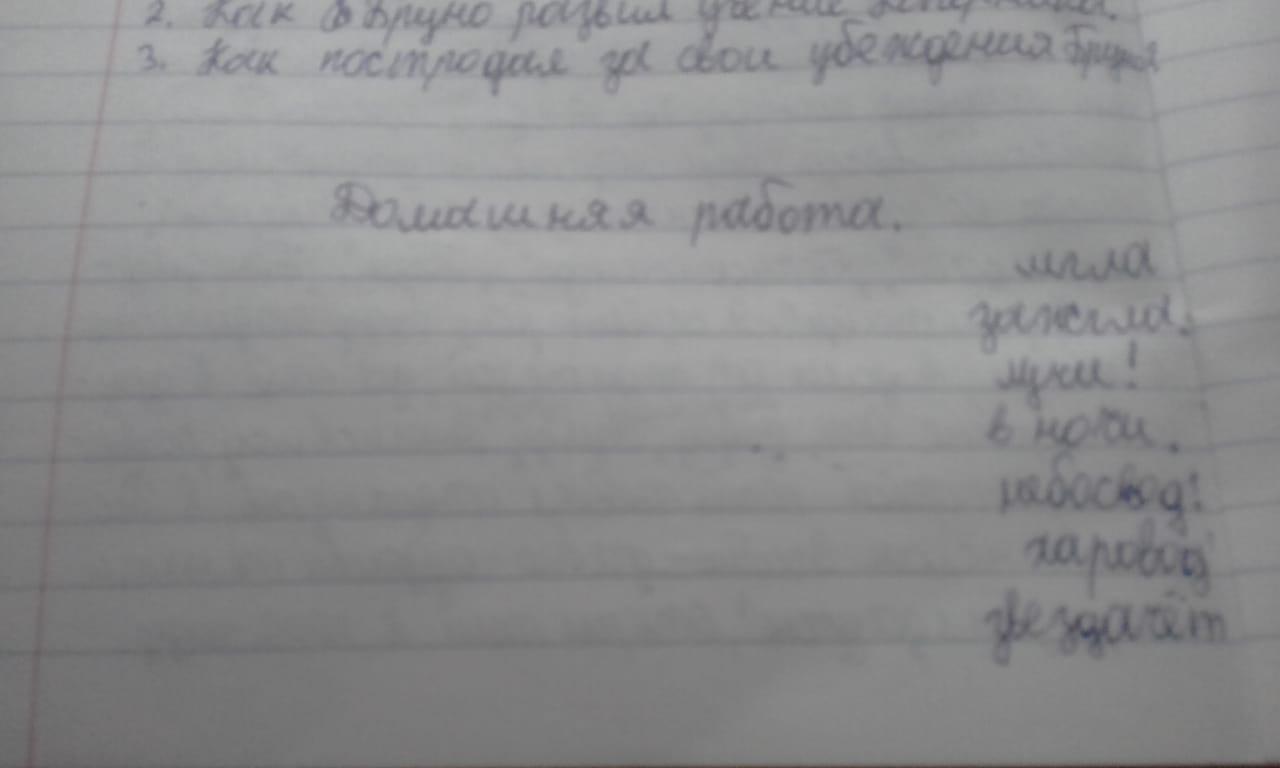 2. Как Бруно развил учение Коперника.
3. Как постродал за свои убеждения Бруно
Домашняя работа.
мгла
зажгла.
лучи!
в ночи.
небосвод!
харовод
звездачёт